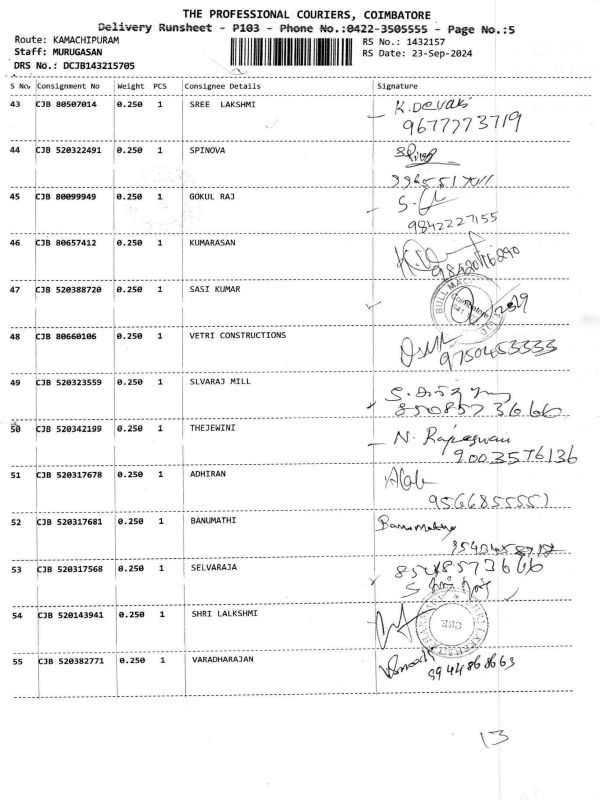 THE PROFESSIONAL COURIERS, COIMBATORE
Delivery Runsheet - P103 - Phone No.:0422-3505555 - Page No.:5
Route: KAMACHIPURAM
RS No.: 1432157
Staff: MURUGASAN
RS Date: 23-Sep-2024
DRS No.: DCJB143215705
S No. Consignment No Weight PCS Consignee Details Signature
43 CJB 80507014 0.250 1 SREE LAKSHMI K.Devaki
9677773719
44 CJB 520322491 0.250 1 SPINOVA
45 CJB 80099949 0.250 1 GOKUL RAJ
9842227155
46 CJB 80657412 0.250 1 KUMARASAN
9842076290
47 CJB 520388720 0.250 1 SASI KUMAR
48 CJB 80660106 0.250 1 VETRI CONSTRUCTIONS
49 CJB 520323559 0.250 1 SLVARAJ MILL
8508573666
50 CJB 520342199 0.250 1 THEJEWINI N. Rajeswari
9003576136
51 CJB 520317678 0.250 1 ADHIRAN
9566855551
52 CJB 520317681 0.250 1 BANUMATHI Banumathy
53 CJB 520317568 0.250 1 SELVARAJA 8508573666
54 CJB 520143941 0.250 1 SHRI LALKSHMI
CBE
55 CJB 520382771 0.250 1 VARADHARAJAN
9944868663
13